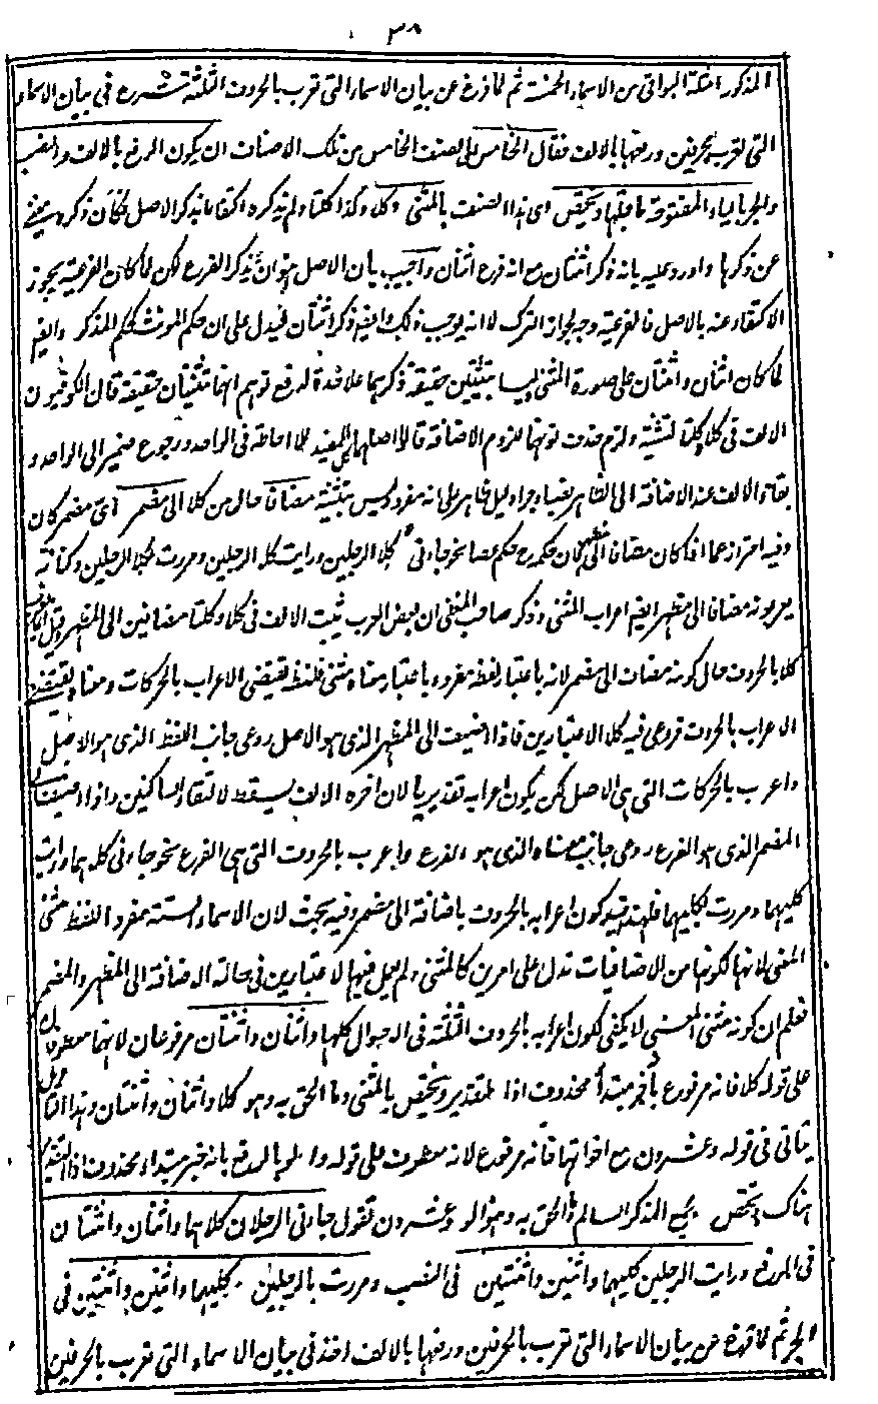 ٣٨
المذكور امثلة البواقى من الاسماء الخمسة ثم لما فرغ عن بيان الاسماء التى تعرب بالحروف الثلثة شرع فى بيان الاسماء
التى تعرب بحرفين ورفعها بالالف فقال الخامس اى الصنف الخامس من تلك الاصناف ان يكون الرفع بالالف والنصب
والجر بالياء المفتوحة ما قبلها ويختص اى هذا الصنف بالمثنى وكلا وكذا كلتا ولم يذكره اكتفاء بذكر الاصل فكان ذكره يغنى
عن ذكرها واورد عليه بانه ذكر اثنتان مع انه فرع اثنان واجيب بان الاصل هو ان يذكر الفرع لكن لما كان الفرعية يجوز
الاكتفاء عنه بالاصل فالفرعية وجه لجواز الترك لا انه يوجب ذلك وايضا ذكر اثنتان فيدل على ان حكم المونث كحكم المذكر وايضا
لما كان اثنان واثنتان على صورة المثنى ليسا بمثنيين حقيقة ذكرهما علاحدة لدفع توهم انهما مثنيان حقيقة قال الكوفيون
الالف فى كلا وكلتا لتثنية ولزم حذف نونهما للزوم الاضافة قالوا اصلهما كل المفيد للاحاطة فى الواحد ورجوع ضمير الى الواحد و
بقاء الالف عند الاضافة الى الظاهر نصبا وجرا دليل ظاهر على انه مفرد ليس بتثنية مضافا حال من كلا الى مضمر اى مضمر كان
وفيه احتراز عما اذا كان مضافا الى مظهر كان حكمه ح حكم عصا نحو جاءنى كلا الرجلين ورايت كلا الرجلين ومررت بكلا الرجلين وكنانة
يعربونه مضافا الى مظهر ايضا اعراب المثنى وذكر صاحب المغنى ان بعض العرب يثبت الالف فى كلا وكلتا مضافين الى المظهر
كلا بالحروف حال كونه مضاف الى مضمر لانه باعتبار لفظه مفرد وباعتبار معناه مثنى فلفظه يقتضى الاعراب بالحركات ومعناه يقتضى
الاعراب بالحروف فروعى فيه كلا الاعتبارين فاذا اضيفت الى المظهر الذى هو الاصل روعى جانب اللفظ الذى هو الاصل
واعرب بالحركات التى هى الاصل لكن يكون اعرابه تقديريا لان آخره الالف يسقط لالتقاء الساكنين واذا اضيفت الى
المضمر الذى هو الفرع روعى جانب معناه الذى هو الفرع واعرب بالحروف التى هى الفرع نحو جاءنى كلاهما ورايت
كليهما ومررت بكليهما فلهذا قيد كون اعرابه بالحروف باضافة الى مضمر وفيه بحث لان الاسماء الستة مفرد اللفظ مثنى
المعنى لانها لكونها من الاضافيات تدل على امرين كالمثنى ولم يعمل فيها الاعتبارين فى حالة الاضافة الى المظهر والمضمر
فعلم ان كونه مثنى المعنى لا يكفى لكون اعرابه بالحروف الثلثة فى الاحوال كلها واثنان واثنتان مرفوعان لانهما معطوفان
على قوله كلا فانه مرفوع بانه خبر مبتدأ محذوف اذا التقدير ويختص بالمثنى وما الحق به وهو كلا واثنان واثنتان وهذا التاويل
يتاتى فى قوله وعشرون مع اخواتها فانه مرفوع لانه معطوف على قوله واولو بالرفع بانه خبر مبتداء محذوف اذا التقدير
هناك ويختص بجمع المذكر السالم وما الحق به وهو الو وعشرون تقول جاءنى الرجلان كلاهما واثنان واثنتان
فى الرفع ورايت الرجلين كليهما واثنين واثنتين فى النصب ومررت بالرجلين كليهما واثنين واثنتين فى
الجر ثم لما فرغ عن بيان الاسماء التى تعرب بالحرفين ورفعها بالالف اخذ فى بيان الاسماء التى تعرب بالحرفين